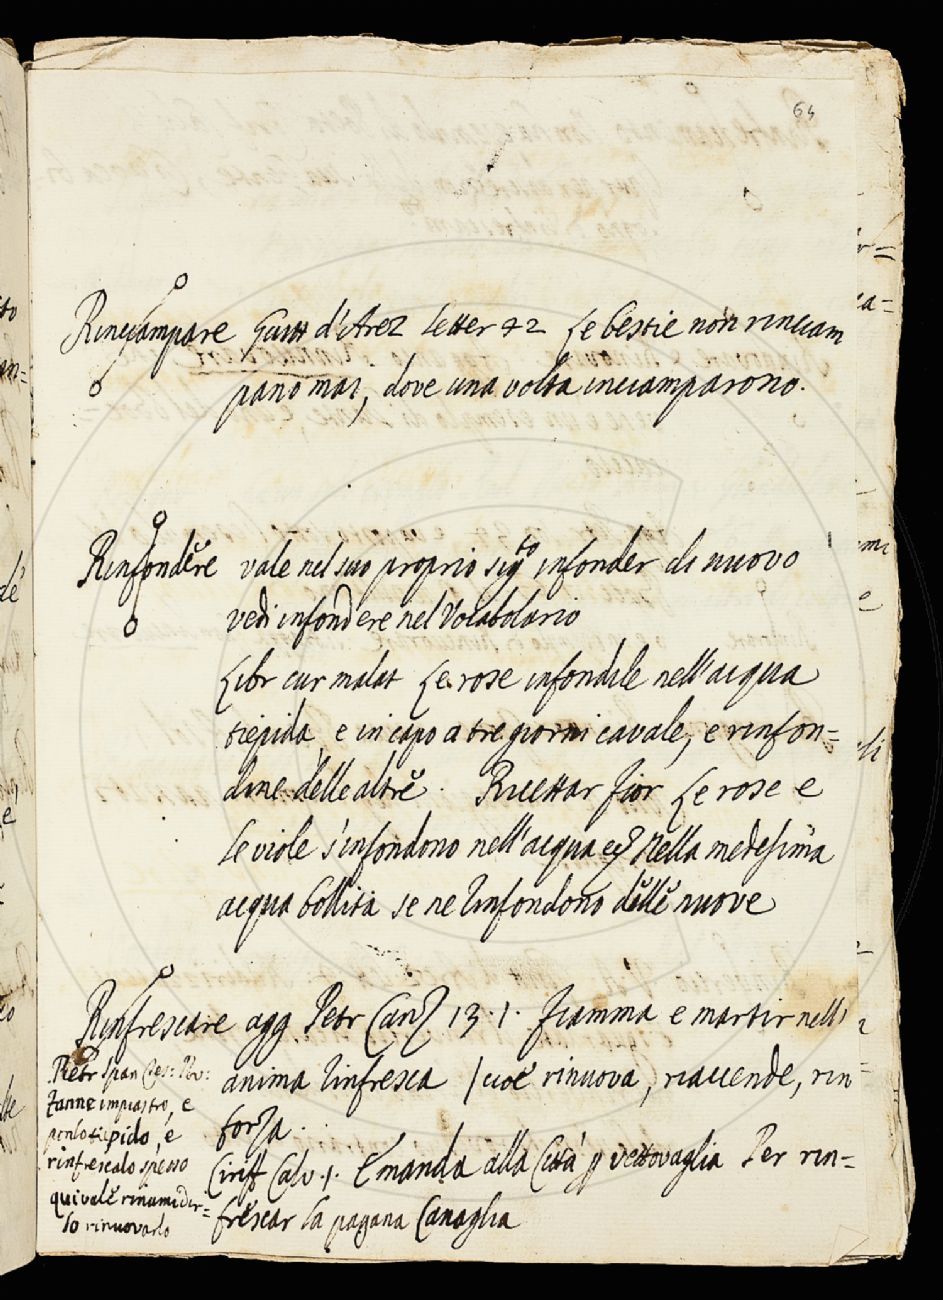 64
Rinciampare Guitt d'Arez letter 42 Le bestie non rinciam
pano mai, dove una volta inciamparono.
Rinfondere vale nel suo proprio sigto infonder di nuovo
vedi infondere nel Vocabolario
Libr cur malat Le rose infondile nell'acqua
tiepida, e in capo a tre giorni cavale, e rinfon=
dine delle altre. Ricettar fior Le rose e
le viole s'infondono nell'acqua Nella medesima
acqua bollita se ne rinfondono delle nuove
Rinfrescare agg Petr Canz 13.1. Fiamma e martir nell'
anima rinfresca /cioè rinuova, riaccende, rin
forza.
Ciriff Calv 1. E manda alla Città p vettovaglia Per rin=
frescar la pagana Canaglia
Pietr Span Tes: Pov:
Fanne impiastro, e
ponlo tiepido, e
rinfrescalo spesso
qui vale
lo rinuovarlo